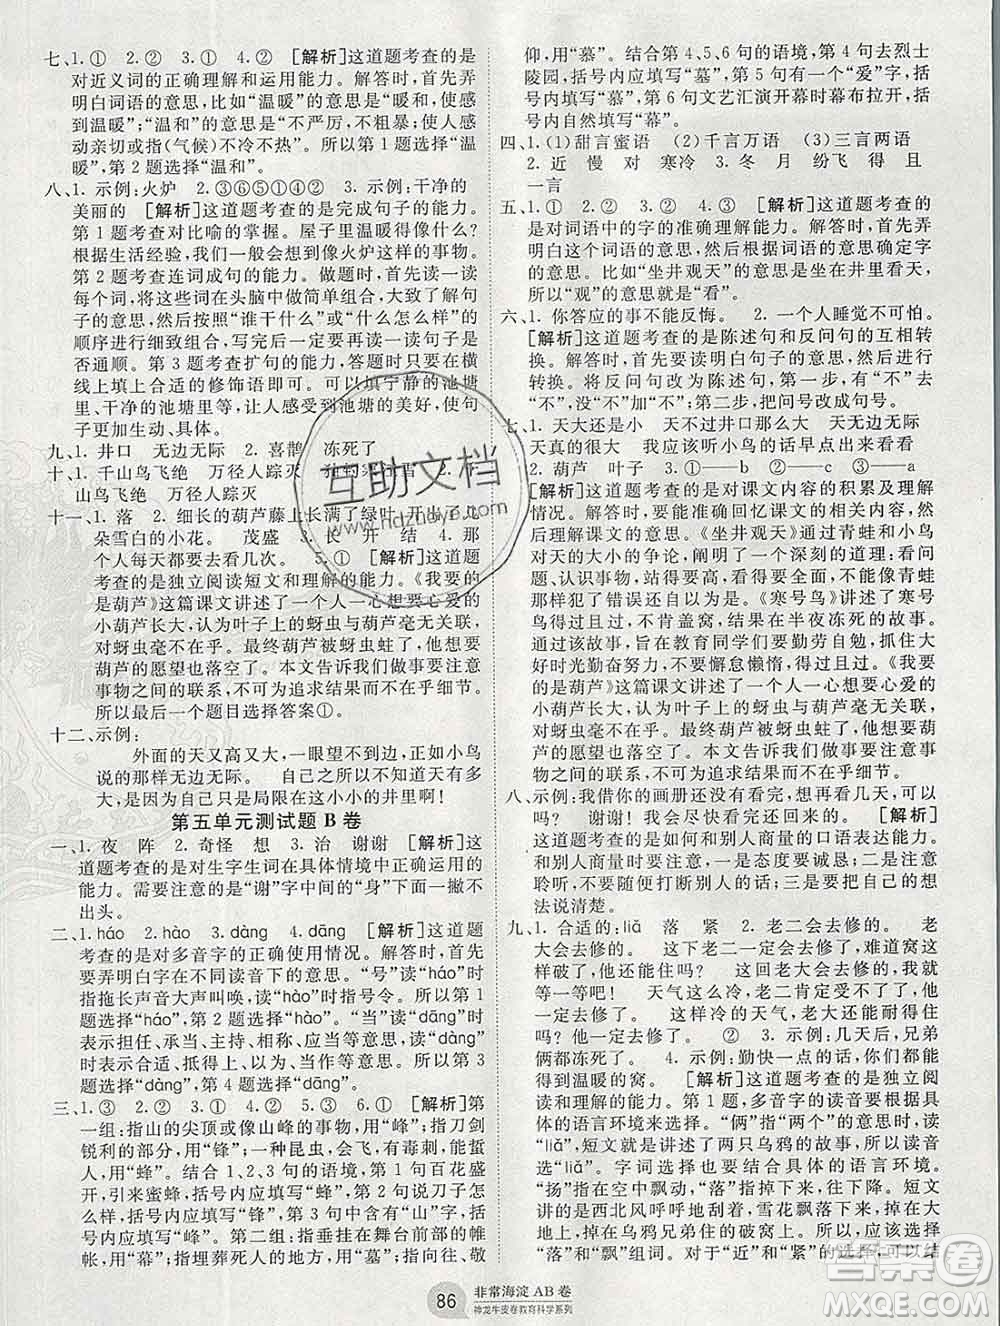 七、1.① 2.② 3.① 4.② [解析]这道题考查的是
对近义词的正确理解和运用能力。解答时,首先弄
明白词语的意思,比如“温暖”的意思是“暖和,使感
到温暖”;“温和”的意思是“不严厉,不粗暴;使感
动亲切或指(气候)不冷不热”。所以第1题选择“温
暖”,第2题选择“温和”。
八、1. 示例:火炉 2.③⑥⑤①④② 3. 示例:干净的
美丽的 [解析]这道题考查的是完成句子的能力。
第1题考查对比喻的掌握。屋子里闷得像什么?
根据生活经验,我们可以填像火炉这样的事物。
第2题考查连词成句的能力。做题时,首先读一读
每个词,将这些词语在头脑中简单组合,了解句
子的意思,然后按照“谁干什么”或“什么怎么样”的
顺序进行细致组合,写出句子,最后再读一读句子是
否通顺。第3题考查扩句的能力,答题时只要在横
线上填上合适的修饰语即可。可以填宁静的池塘、
干净的池塘里等,让人感受到池塘的美好,使句
子更加生动。
九、1. 井口 无边无际 2. 喜鹊 冻死了
十、1. 千山鸟飞绝 万径人踪灭
千山鸟飞绝 万径人踪灭
十一、1. 落 2. 细长的葫芦藤上长满了绿叶,开出了几
朵雪白的小花。 茂盛 3. 长 开 结 4. 那
个人每天都要去看几次。 5.① [解析]这道题
考查的是独立阅读短文和理解的能力。《我要的
是葫芦》这篇课文讲述了一个人一心想要心爱的
小葫芦,却认为叶子上的蚜虫与葫芦毫无关联,
对蚜虫毫不在乎。最终葫芦被蚜虫蛀了,他想要
葫芦的愿望也落空了。本文告诉我们做事要注意
事物之间的联系,不可为达目的而不在乎细节。
所以最后一个题目选择答案①。
十二、示例:
外面的天又高又大,一眼望不到边,正如小鸟
说的那样无边无际。 自己以所以不知道天有多大,
是因为自己只是局限在小小的井里啊!
第五单元测试题 B 卷
一、1. 夜 阵 2. 奇怪 想 3. 治 谢谢 [解析]这
道题考查的是对生字生词在具体情境中正确运用的
能力。需要注意的是“谢”字中间的“身”下面一撇不
出头。
二、1. háo 2. hào 3. dàng 4. dāng [解析]这道题
考查的是对多音字的正确使用情况。解答时,首先
要弄明白字在不同读音下的意思。“号”读“háo”时
指拖长声音大声叫唤,读“hào”时指号令。所以第1
题选择“háo”,第2题选择“hào”。“当”读“dāng”时
表示担任、承当、主持等意思;读“dàng”时
表示合适、抵得上、以为、当作等意思。所以第3
题选择“dàng”,第4题选择“dāng”。
三、1.③ 2.② 3.① 4.① 5.③ 6.② [解析]第
一组:指山的尖顶或像山峰的事物,用“峰”;指刀剑
锐利的部分,用“锋”;一种昆虫,会飞,有毒刺,能蜇
人,用“蜂”。结合1、2、3句的语境,第1句百花盛
开,招来蜜蜂,括号内应填写“蜂”,第2句说刀子怎
么样,括号内应填写“锋”,第3句一座高山,括号内
应填写“峰”。第二组:指垂挂在舞台前部的帷
帐,用“幕”;指埋葬死人的地方,用“墓”;指向往、敬
仰,用“慕”。结合第4、5、6句的语境,第4句去烈士
陵园,括号内应填写“墓”,第5句有一个“爱”字,括
号内填写“慕”,第6句文艺汇演开幕时幕布拉开,括
号内应填写“幕”。
四、1.(1)甜言蜜语 (2)千言万语 (3)三言两语
2. 近 慢 对 寒冷 3. 冬 月 纷飞 得 且
一言
五、1.① 2.② 3.② 4.③ [解析]这道题考查的
是对词语中的字的准确理解能力。解答时,首先弄
明白这个词语的意思,然后根据词语的意思确定字
的意思。比如“坐井观天”的意思是坐在井里看天,
所以“观”的意思就是“看”。
六、1. 你答应的事不能反悔。 2. 一个人睡觉不可怕。
[解析]这道题考查的是陈述句和反问句的互相转
换。解答时,首先要读明白句子的意思,然后进行
转换。将反问句改为陈述句,第一步,有“不”去
“不”,没“不”加“不”;第二步,把问号改成句号。
七、1. 天大还是小 天不过井口那么大 天无边无际
天真的很大 我应该听小鸟的话早点出来看看
2. 葫芦 叶子 3.①——b ②——c ③——a
[解析]这道题考查的是对课文内容的积累及理解
情况。解答时,要准确回忆课文的相关内容,并正
确理解课文中蕴含的深刻道理。《坐井观天》通过青蛙和小鸟对
天的大小的争论,阐明了一个深刻的道理:看问
题、认识事物,站得高才能看得全面,不能像青蛙
那样犯了错误还自以为是。《寒号鸟》讲述了寒号
鸟因为懒惰,不肯盖窝,在半夜冻死的故事。
通过该故事,旨在教育同学们要勤劳勇敢,抓住大
好时光勤奋努力,不要懈怠懒惰,得过且过。《我要
的是葫芦》这篇课文讲述了一个人一心想要心爱的
小葫芦,却认为叶子上的蚜虫与葫芦毫无关联,
对蚜虫毫不在乎。最终葫芦被蚜虫蛀了,他想要葫
芦的愿望也落空了。本文告诉我们做事要注意事物
之间的联系,不可为达目的而不在乎细节。
八、示例:我借你的画册还没有看完,再借我看几天可以
吗? 没关系,你继续看吧,看完了再还给我。
[解析]这道题考查的是如何和别人商量的口语表达能力。
和别人商量时:一是态度要诚恳;二是要注意
聆听,不随便打断别人的话;三是要把自己的想
法说清楚。
九、1. 合适的:liǎ 落 紧 2. 老二会去修的。 老
大会去修的。 这下老二一定会去修了,难道窝这
样破了,他还能住吗? 这回老大会去修了,我就
等一等吧! 天气这么冷,老二肯定受不了,他一
定会去修了。 这样冷的天气,老大还能耐得住
吗?他一定去修了。 ② 3. 示例:几天后,兄弟
俩都冻死了。 4. 示例:勤快一点的话,也就不会
冻死在温暖的窝里。 [解析]这道题考查的是独立阅
读和理解的能力。第1题,多音字的选择要根据
具体语言环境来选择。“俩”指“两个”的意思时,读
“liǎ”,短文就是讲了两只乌鸦的故事,所以读音选
“liǎ”。字词选择要结合具体的语言环境。
“扬”指在空中飘动,“落”指掉下来、往下降。短文
讲的是西北风呼呼地刮着,雪花飘落下来,掉在大
地上,掉在乌鸦兄弟住的破窝上,所以,应该选择
“落”和“飘”组词。对于“近”和“紧”的选择,可以结
86
非常海淀 AB 卷
神龙牛皮卷教育科学系列
互助文档
www.hdzuoye.com
答案圈
MXQE.COM